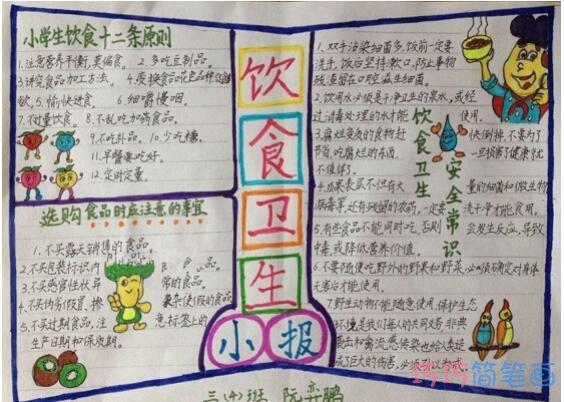 小学生饮食十二条原则
1.注意营养平衡,莫偏食。 2.多吃豆制品。
3.讲究食品加工方法。 4.变换食品花色品种
5.愉快进食。 6.细嚼慢咽。
7.不过量饮食。 8.不乱吃加药食品。
9.不吃补品。 10.少吃糖。
11.早餐要吃好。
12.定时定量。
选购食品时应注意的事宜
1.不买露天销售的食品。
2.不买包装标识内
3.不买感官性状异常的食品。
4.不买伪劣假冒、掺杂使假的食品
5.不买过期食品,注意标签上的
生产日期和保质期。
饮
食
卫
生
小报
饮食卫生
安全常识
1.双手沾染细菌多,饭前一定要
洗手,饭后坚持漱口,防止事物
残渣留在口腔滋生细菌。
2.饮用水必须是干净卫生的泉水,或经
过消毒处理的水才能使用。
3.腐烂变质的食物赶快倒掉,不要为了
节省,吃腐烂的东西,一旦损害了健康就
不值得了。
4.瓜果表皮不但有大量的细菌和微生物
病毒等,还有残留的农药,一定要洗干净才能食用。
5.有些食品不能同时吃,否则会发生反应,导致
中毒,或降低营养价值。
6.不要随便吃野外的野果和野菜,必须确定对身体
无害后才能使用。
7.野生动物不能随意使用,保护生态
环境是我们每人的共同义务,非典
三
班 阮弈鹏
巧巧简笔画